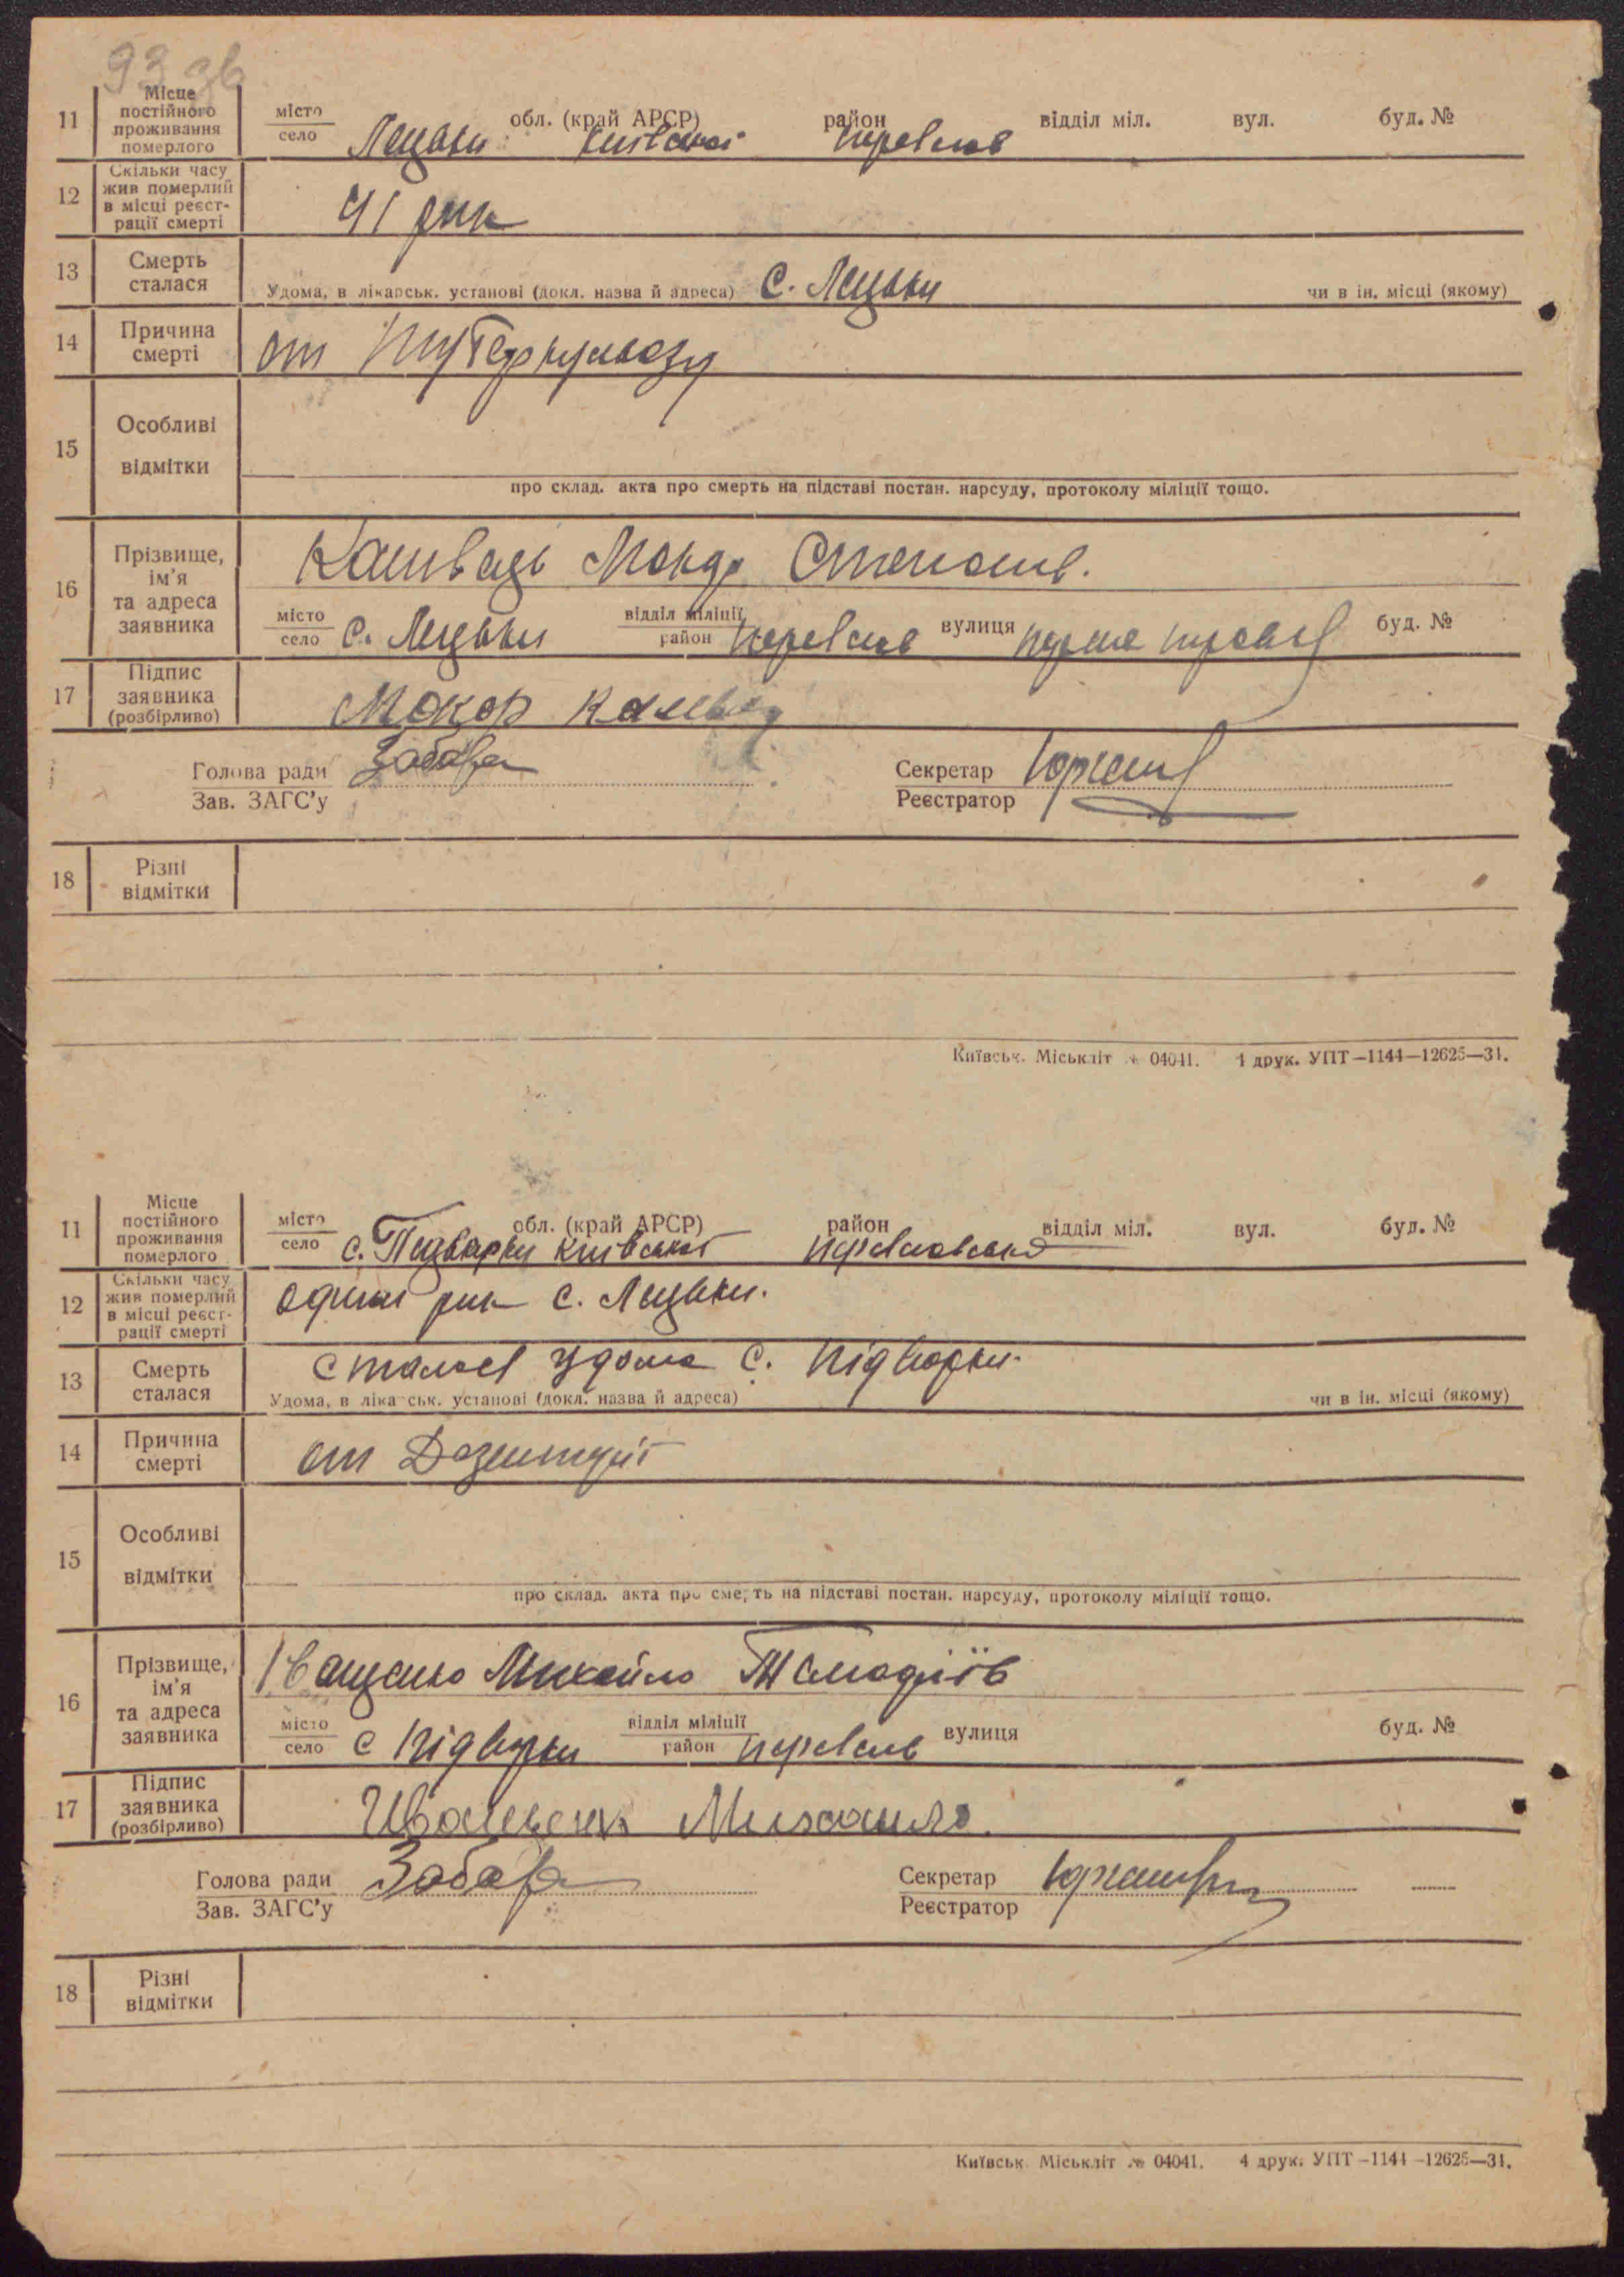 93 зв
11 Місце постійного проживання померлого місто село Лецьки обл. (край АРСР) Київської район Переяслав відділ міл. вул. буд. №
12 Скільки часу жив померлий в місці реєстрації смерті 41 рик
13 Смерть сталася Удома, в лікарськ. установі (докл. назва й адреса) С. Лецьки чи в ін. місці (якому)
14 Причина смерті от Туберкульозу
15 Особливі відмітки
про склад. акта про смерть на підставі постан. нарсуду, протоколу міліції тощо.
16 Прізвище, ім'я та адреса заявника
місто село с. Лецьки відділ міліції район Переяслав вулиця буд. №
17 Підпис заявника (розбірливо) Мокор
Голова ради Зав. ЗАГС'у Забара Секретар Реєстратор
18 Різні відмітки
Київськ. Міськліт № 04041. 4 друк. УПТ—1144—12625—31.
11 Місце постійного проживання померлого місто село с. Підварки обл. (край АРСР) Київської район Переяславський відділ міл. вул. буд. №
12 Скільки часу жив померлий в місці реєстрації смерті один рик с. Лецьки.
13 Смерть сталася сталася удома с. Підворки.
Удома, в лікарськ. установі (докл. назва й адреса) чи в ін. місці (якому)
14 Причина смерті от Дезентерії
15 Особливі відмітки
про склад. акта про смерть на підставі постан. нарсуду, протоколу міліції тощо.
16 Прізвище, ім'я та адреса заявника Іващенко Михайло
місто село с Підворки відділ міліції район Переяслав вулиця буд. №
17 Підпис заявника (розбірливо) Михаило.
Голова ради Зав. ЗАГС'у Забара Секретар Реєстратор
18 Різні відмітки
Київськ. Міськліт № 04041. 4 друк. УПТ—1144—12625—31.